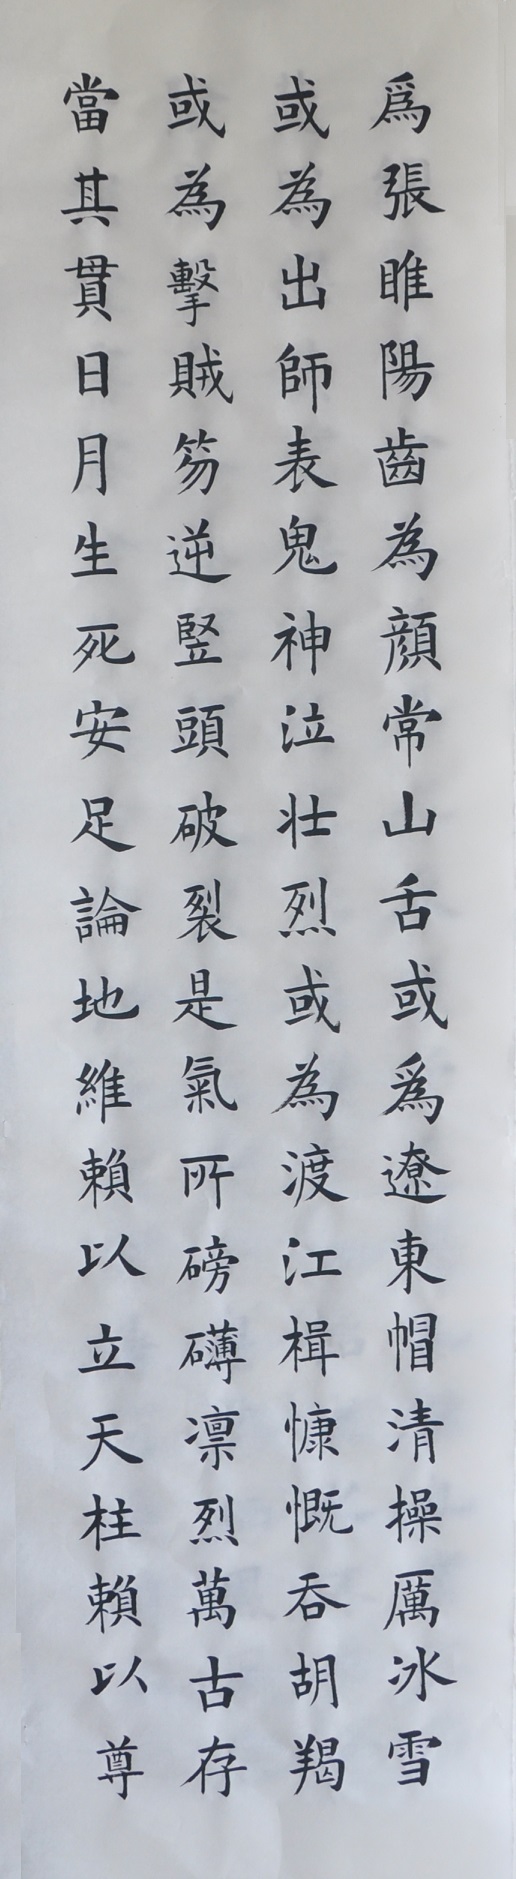 爲張睢陽齒為顏常山舌或爲遼東帽清操厲冰雪
或為出師表鬼神泣壮烈或為渡江楫慷慨吞胡羯
或為擊賊笏逆竪頭破裂是氣所磅礴凛烈萬古存
當其貫日月生死安足論地維賴以立天柱賴以尊